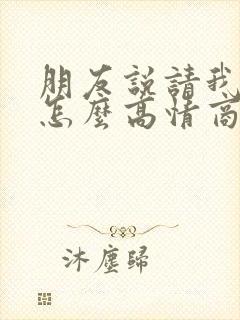 朋友說請我
怎麼高情商
沐塵歸